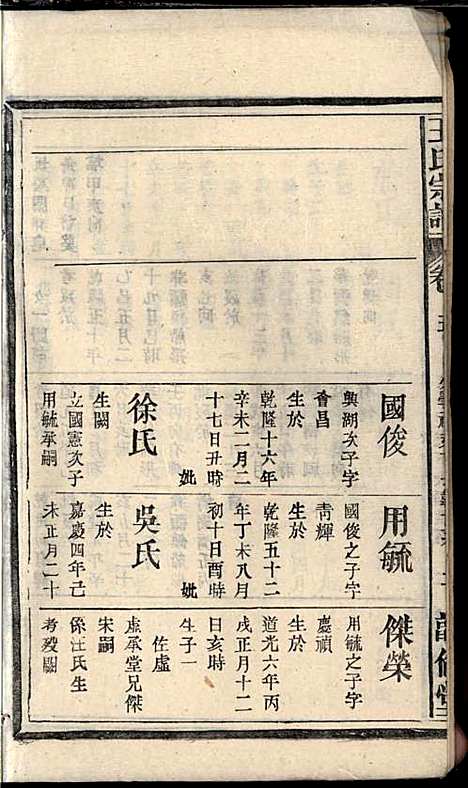 王氏宗譜
卷
國俊
興湖次子字
會昌
生於
乾隆十六年
辛未二月二
十七日丑時
妣
徐氏
生闕
立國憲次子
用毓承嗣
用毓
國俊之子字
靑輝
生於
乾隆五十二
年丁未八月
初十日酉時
妣
吳氏
生於
嘉慶四年己
未正月二十
傑榮
用毓之子字
慶禎
生於
道光六年丙
戌正月十二
日亥時
生子一
佐虛
虛承堂兄傑
宋嗣
係汪氏生
考歿闕